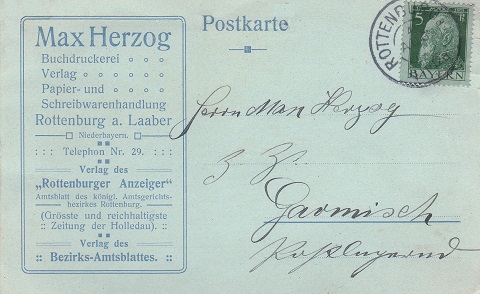 Max Herzog
Buchdruckerei
Verlag
Papier- und
Schreibwarenhandlung
Rottenburg a. Laaber
Niederbayern.
Telephon Nr. 29.
Verlag des
„Rottenburger Anzeiger“
Amtsblatt des königl. Amtsgerichts-
bezirkes Rottenburg.
(Grösste und reichhaltigste
Zeitung der Holledau).
Verlag des
Bezirks-Amtsblattes.
Postkarte
ROTTENB
5
BAYERN
Herrn Max Herzog
z. Zt.
Garmisch
Postlagernd